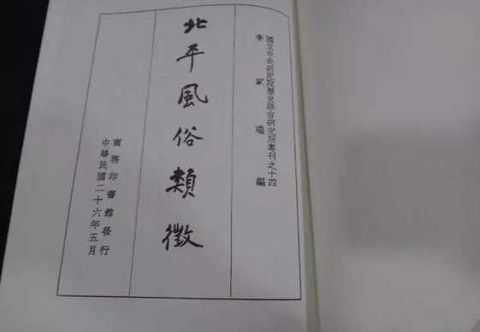 國立中央研究院歷史語言研究所專刊之十四
李家瑞編
北平風俗類徵
商務印書館發行
中華民國二十六年五月